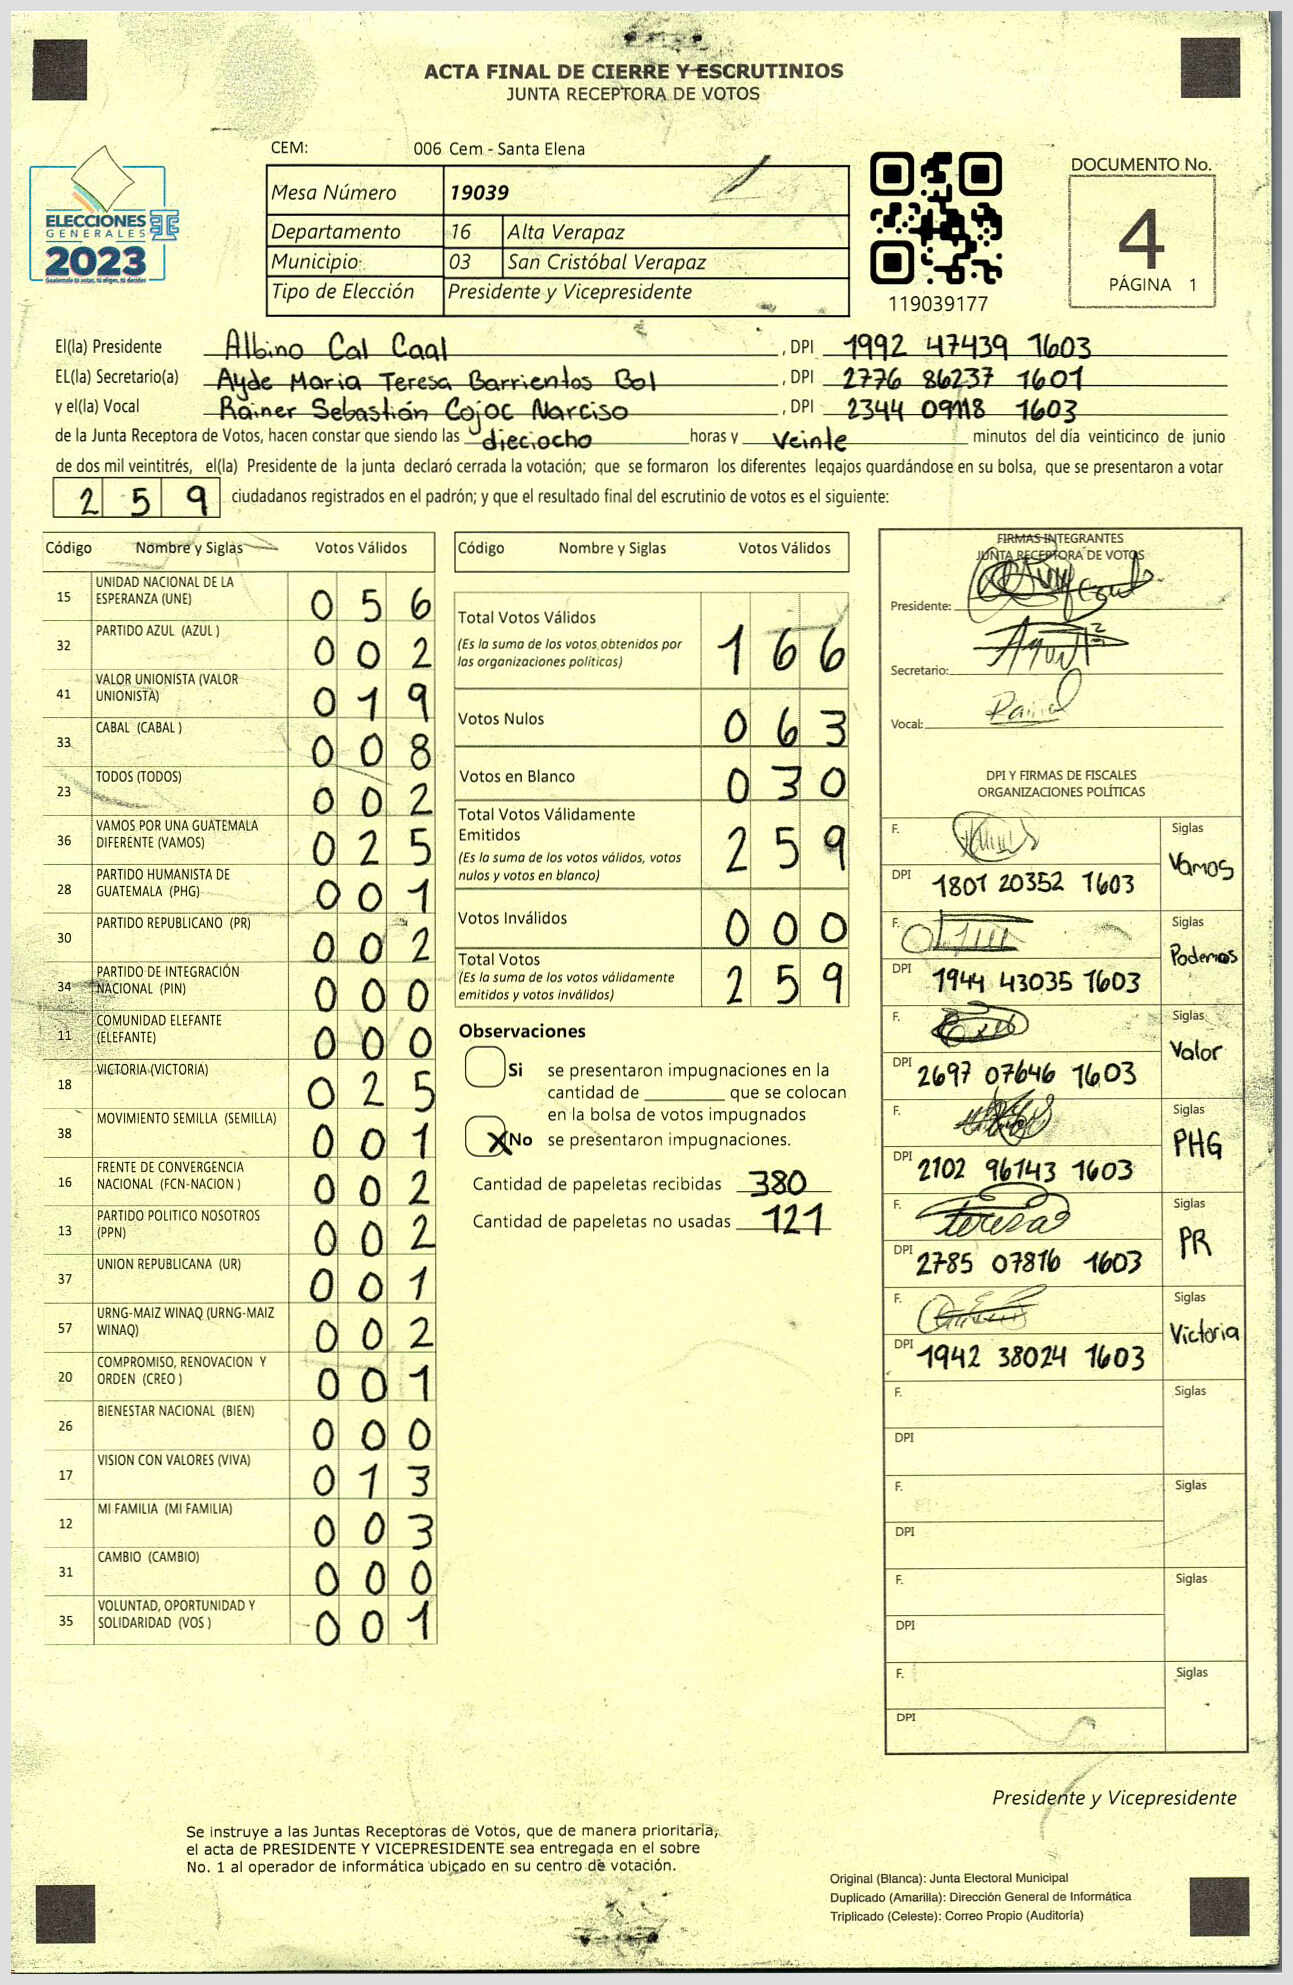 ACTA FINAL DE CIERRE Y ESCRUTINIOS
JUNTA RECEPTORA DE VOTOS
CEM: 006 Cem - Santa Elena
ELECCIONES
GENERALES
2023
Guatemala tú votas, tú eliges, tú decides
Mesa Número 19039
Departamento 16 Alta Verapaz
Municipio: 03 San Cristóbal Verapaz
Tipo de Elección Presidente y Vicepresidente
119039177
DOCUMENTO No.
4
PÁGINA 1
El(la) Presidente Albino Cal Caal , DPI 1992 47439 1603
EL(la) Secretario(a) Ayde Maria Teresa Barrientos Bol , DPI 2776 86237 1601
y el(la) Vocal Rainer Sebastián Cojoc Narciso , DPI 2344 09118 1603
de la Junta Receptora de Votos, hacen constar que siendo las dieciocho horas y veinte minutos del día veinticinco de junio
de dos mil veintitrés, el(la) Presidente de la junta declaró cerrada la votación; que se formaron los diferentes legajos guardándose en su bolsa, que se presentaron a votar
2 5 9 ciudadanos registrados en el padrón; y que el resultado final del escrutinio de votos es el siguiente:
Código Nombre y Siglas Votos Válidos
15 UNIDAD NACIONAL DE LA
ESPERANZA (UNE) 0 5 6
32 PARTIDO AZUL (AZUL ) 0 0 2
41 VALOR UNIONISTA (VALOR
UNIONISTA) 0 1 9
33 CABAL (CABAL ) 0 0 8
23 TODOS (TODOS) 0 0 2
36 VAMOS POR UNA GUATEMALA
DIFERENTE (VAMOS) 0 2 5
28 PARTIDO HUMANISTA DE
GUATEMALA (PHG) 0 0 1
30 PARTIDO REPUBLICANO (PR) 0 0 2
34 PARTIDO DE INTEGRACIÓN
NACIONAL (PIN) 0 0 0
11 COMUNIDAD ELEFANTE
(ELEFANTE) 0 0 0
18 VICTORIA (VICTORIA) 0 2 5
38 MOVIMIENTO SEMILLA (SEMILLA) 0 0 1
16 FRENTE DE CONVERGENCIA
NACIONAL (FCN-NACION ) 0 0 2
13 PARTIDO POLITICO NOSOTROS
(PPN) 0 0 2
37 UNION REPUBLICANA (UR) 0 0 1
57 URNG-MAIZ WINAQ (URNG-MAIZ
WINAQ) 0 0 2
20 COMPROMISO, RENOVACION Y
ORDEN (CREO ) 0 0 1
26 BIENESTAR NACIONAL (BIEN) 0 0 0
17 VISION CON VALORES (VIVA) 0 1 3
12 MI FAMILIA (MI FAMILIA) 0 0 3
31 CAMBIO (CAMBIO) 0 0 0
35 VOLUNTAD, OPORTUNIDAD Y
SOLIDARIDAD (VOS ) 0 0 1
Código Nombre y Siglas Votos Válidos
Total Votos Válidos
(Es la suma de los votos obtenidos por
las organizaciones políticas) 1 6 6
Votos Nulos 0 6 3
Votos en Blanco 0 3 0
Total Votos Válidamente
Emitidos
(Es la suma de los votos válidos, votos
nulos y votos en blanco) 2 5 9
Votos Inválidos 0 0 0
Total Votos
(Es la suma de los votos válidamente
emitidos y votos inválidos) 2 5 9
Observaciones
Si se presentaron impugnaciones en la
cantidad de ________ que se colocan
en la bolsa de votos impugnados
X No se presentaron impugnaciones.
Cantidad de papeletas recibidas 380
Cantidad de papeletas no usadas 121
FIRMAS INTEGRANTES
JUNTA RECEPTORA DE VOTOS
Presidente:
Secretario:
Vocal:
DPI Y FIRMAS DE FISCALES
ORGANIZACIONES POLÍTICAS
F. Siglas
DPI 1801 20352 1603 Vamos
F. Siglas
DPI 1944 43035 1603 Podemos
F. Siglas
DPI 2697 07646 1603 Valor
F. Siglas
DPI 2102 96143 1603 PHG
F. Teresa Siglas
DPI 2785 07816 1603 PR
F. Siglas
DPI 1942 38024 1603 Victoria
F. Siglas
DPI
F. Siglas
DPI
F. Siglas
DPI
F. Siglas
DPI
Presidente y Vicepresidente
Se instruye a las Juntas Receptoras de Votos, que de manera prioritaria,
el acta de PRESIDENTE Y VICEPRESIDENTE sea entregada en el sobre
No. 1 al operador de informática ubicado en su centro de votación.
Original (Blanca): Junta Electoral Municipal
Duplicado (Amarilla): Dirección General de Informática
Triplicado (Celeste): Correo Propio (Auditoría)